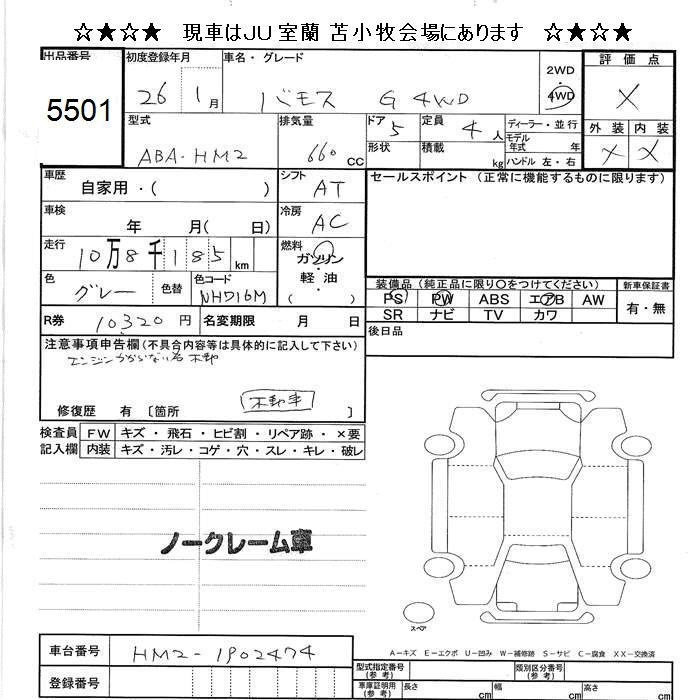 ☆★☆★ 現車はJU室蘭 苫小牧会場にあります ☆★☆★
出品番号
5501
初度登録年月
26 1月
車名・グレード
バモス G 4WD
2WD
4WD
評価点
X
外装 内装
X X
型式
ABA-HM2
排気量
660 CC
ドア
5
定員
4人
形状
積載
kg
ディーラー・並行
モデル年式 年
ハンドル 左・右
車歴
自家用・( )
シフト
AT
車検
年 月( 日)
冷房
AC
走行
10万8千185 km
燃料
ガソリン
・
軽油
( )
色
グレー
色替
色コード
NH716M
R券 10320円
名変期限 月 日
セールスポイント (正常に機能するものに限ります)
装備品(純正品に限り○をつけてください)
新車保証書
PS PW ABS エアB AW
有・無
SR ナビ TV カワ
後日品
注意事項申告欄(不具合内容等は具体的に記入して下さい)
エンジンかからない為 不動
不動車
修復歴 有 〔箇所 〕
検査員
記入欄
FW キズ・飛石・ヒビ割・リペア跡・×要
内装 キズ・汚レ・コゲ・穴・スレ・キレ・破レ
ノークレーム車
スペア
A-キズ E-エクボ U-凹み W-補修跡 S-サビ C-腐食 XX-交換済
車台番号
HM2-1902474
登録番号
型式指定番号
(参考)
類別区分番号
(参考)
車庫証明用
(参考)
長さ cm
幅 cm
高さ cm